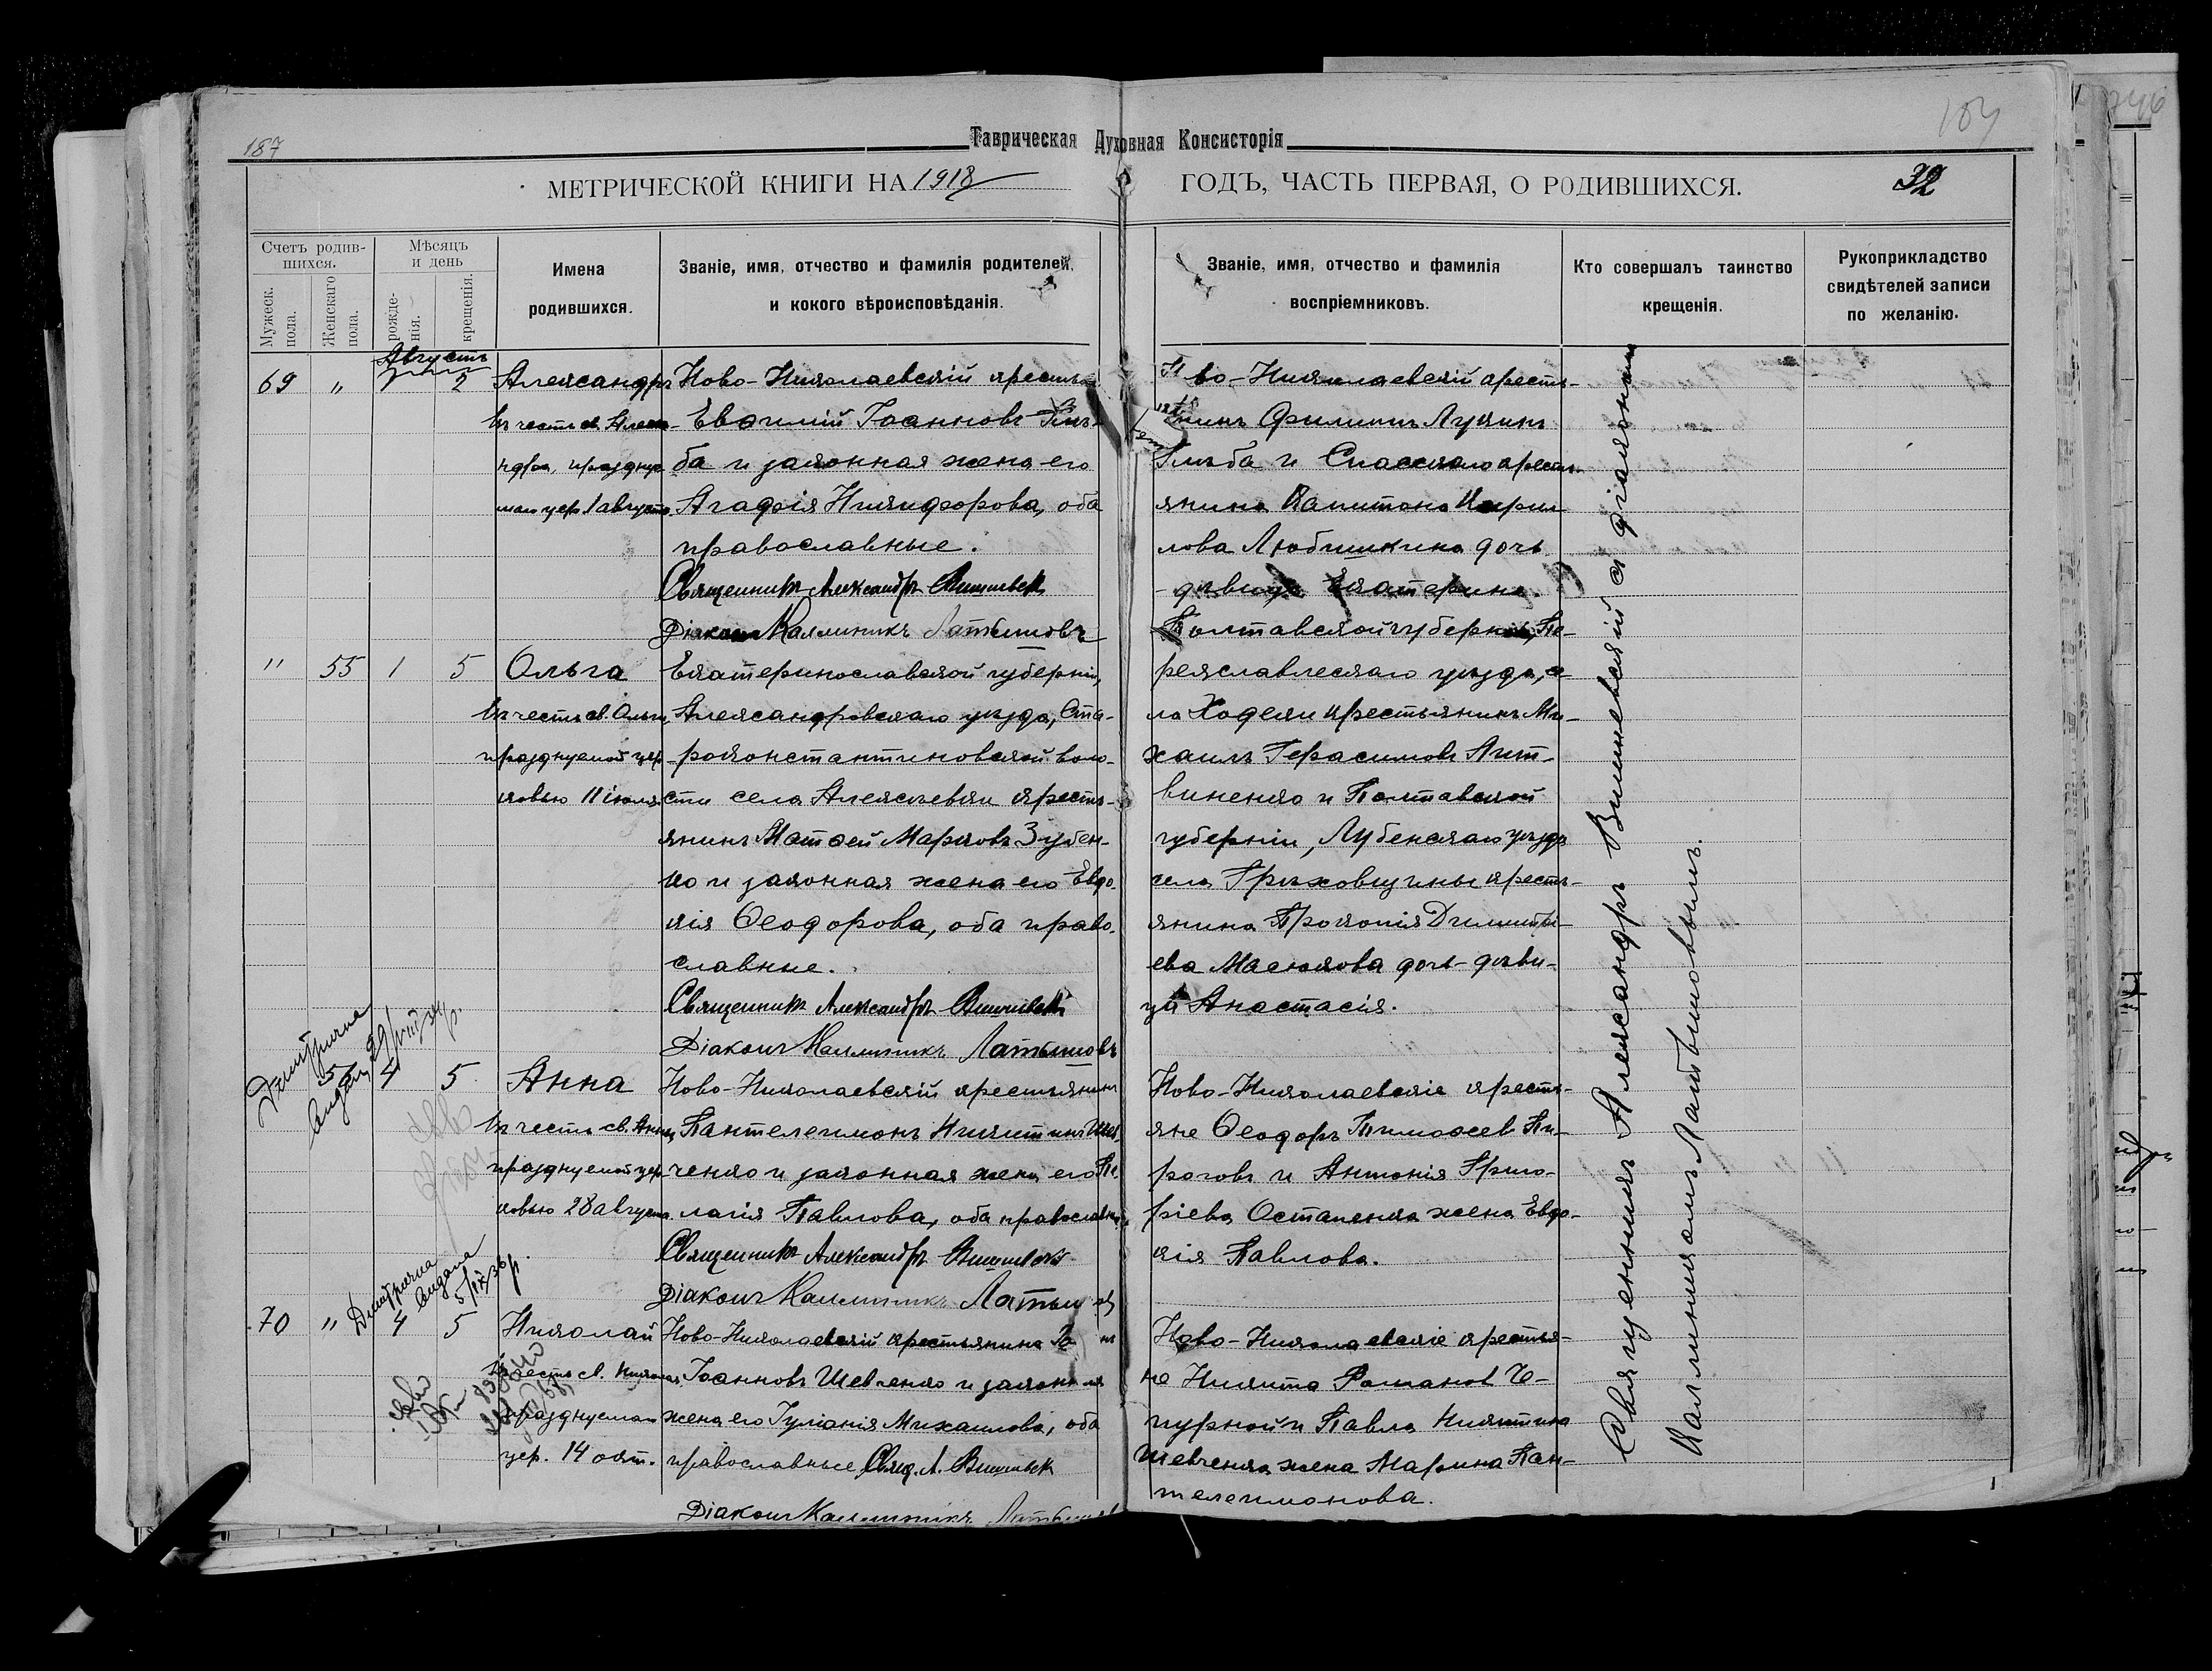 187
Таврическая Духовная Консисторія
МЕТРИЧЕСКОЙ КНИГИ НА 1918 ГОДЪ, ЧАСТЬ ПЕРВАЯ, О РОДИВШИХСЯ.
32
Счетъ родив-
шихся.
Мужеск. пола.
Женскаго пола.
Мѣсяцъ
и день
рожде-
нія.
крещенія.
Имена
родившихся.
Званіе, имя, отчество и фамилія родителей,
и кокого вѣроисповѣданія.
Званіе, имя, отчество и фамилія
воспріемниковъ.
Кто совершалъ таинство
крещенія.
Рукоприкладство
свидѣтелей записи
по желанію.
Августъ
69 " 2
Александръ
въ честь св. Алекса-
ндра, праздну
цер. 1 августа
Ново-Николаевскій кресть-
Евѳимій Іоанновъ
ба и законная жена его
Агафія Никифорова, оба
православные.
Священникъ Александръ Вишневскій
Діаконъ Каллиникъ Латышовъ
во-Николаевскій кресть-
нинъ Филиппъ Лукинъ
Глѣба и Спасскаго кресть-
янина Капитона Кирил-
лова Любишкина дочь
- дѣвица Екатерина.
" 55 1 5
Ольга
въ честь св. Ольги,
празднуемой цер-
ковью 11 іюля
Екатеринославской губерніи,
Александровскаго уѣзда, Ста-
роконстантиновской воло-
сти села Алексѣевки кресть-
янинъ Матѳей Марковъ Зубен-
ко и законная жена его Евдо-
кія Ѳеодорова, оба право-
славные.
Священникъ Александръ Вишневскій
Діаконъ Каллиникъ Латышовъ
Полтавской губерніи, Пе-
реяславлескаго уѣзда, се-
ла Ходеки крестьянинъ Ми-
хаилъ Герасимовъ Лит-
виненко и Полтавской
губерніи, Лубенскаго уѣзда
села Грѣховщины кресть-
янина Прокопія Димитрі-
ева Масюкова дочь-дѣви-
ца Анастасія.
56 4 5
Анна
въ честь св. Анны,
празднуемой цер-
ковью 28 августа
Ново-Николаевскій крестьянинъ
Пантелеимонъ Никитинъ Шев-
ченко и законная жена его Пе-
лагія Павлова, оба православные
Священникъ Александръ Вишневскій
Діаконъ Каллиникъ Латышовъ
Ново-Николаевскіе кресть-
яне Ѳеодоръ Тимоѳеевъ Пи-
роговъ и Антонія Григо-
ріева Остапенка жена Евдо-
кія Павлова.
Дмитрична
видана
5/IX/36р.
70 " 4 5
Николай
въ честь св. Николая,
празднуемаго
цер. 14 окт.
Ново-Николаевскій крестьянинъ
Іоанновъ Шевченко и законная
жена его Іуліанія Михаилова, оба
православные. Свящ. А. Вишневскій
Діаконъ Каллиникъ Латышовъ
Ново-Николаевскіе крестья-
не Никита Романовъ Че-
пурной и Павла Никитина
Шевченка жена Марина Пан-
телеимонова.
Священникъ Александръ Вишневскій съ діакономъ
Каллиникомъ Латышовымъ.